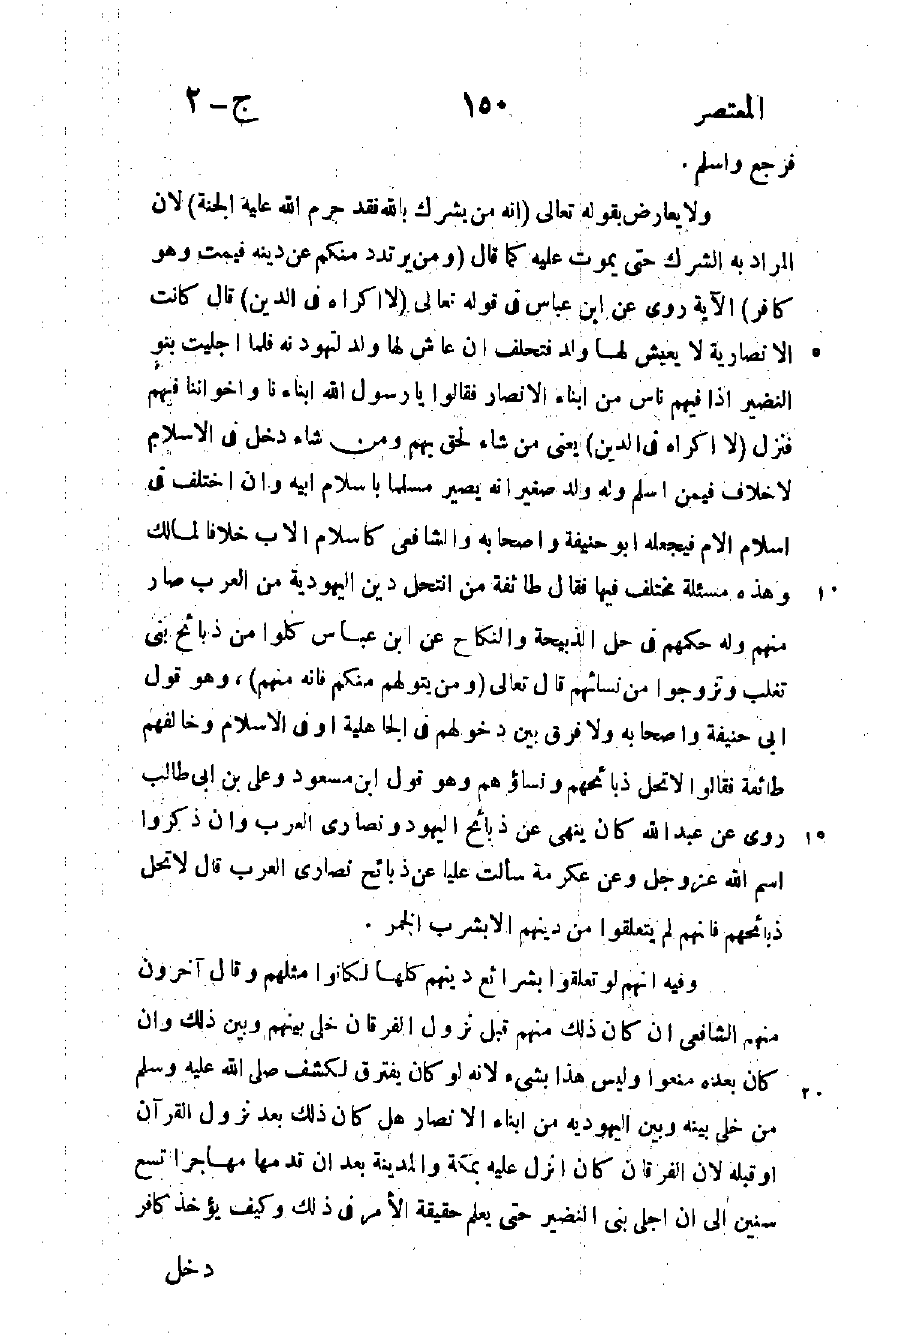 المعتصر ١٥٠ ج-٢
فرجع واسلم .
ولا يعارض بقوله تعالى (انه من يشرك بالله فقد حرم الله عليه الجنة) لان
المراد به الشرك حتى يموت عليه كما قال (ومن يرتدد منكم عن دينه فيمت وهو
كافر) الآية روى عن ابن عباس فى قوله تعالى (لا اكراه فى الدين) قال كانت
الانصارية لا يعيش لها ولد فتحلف ان عاش لها ولد لتهودنه فلما اجليت بنو ٥
النضير اذا فيهم ناس من ابناء الانصار فقالوا يا رسول الله ابناءنا واخواننا فيهم
فنزل (لا اكراه فى الدين) يعنى من شاء لحق بهم ومن شاء دخل فى الاسلام
لا خلاف فيمن اسلم وله ولد صغير انه يصير مسلما باسلام ابيه وان اختلف فى
اسلام الام فيجعله ابو حنيفة واصحابه والشافعى كاسلام الاب خلافا لمالك
وهذه مسئلة مختلف فيها فقال طائفة من انتحل دين اليهودية من العرب صار ١٠
منهم وله حكمهم فى حل الذبيحة والنكاح عن ابن عباس كلوا من ذبائح بنى
تغلب وتزوجوا من نسائهم قال تعالى (ومن يتولهم منكم فانه منهم)، وهو قول
ابى حنيفة واصحابه ولا فرق بين دخولهم فى الجاهلية او فى الاسلام وخالفهم
طائفة فقالوا لا تحل ذبائحهم ونساؤهم وهو قول ابن مسعود وعلى بن ابى طالب
روى عن عبدالله كان ينهى عن ذبائح اليهود ونصارى العرب وان ذكروا ١٥
اسم الله عزوجل وعن عكرمة سألت عليا عن ذبائح نصارى العرب قال لا تحل
ذبائحهم فانهم لم يتعلقوا من دينهم الا بشرب الخمر .
وفيه انهم لو تعلقوا بشرائع دينهم كلها لكانوا مثلهم وقال آخرون
منهم الشافعى ان كان ذلك منهم قبل نزول الفرقان خلى بينهم وبين ذلك وان
كان بعده منعوا وليس هذا بشىء لانه لو كان يفترق لكشف صلى الله عليه وسلم ٢٠
من خلى بينه وبين اليهوديه من ابناء الانصار هل كان ذلك بعد نزول القرآن
او قبله لان الفرقان كان انزل عليه بمكة والمدينة بعد ان قدمها مهاجرا تسع
سنين الى ان اجلى بنى النضير حتى يعلم حقيقة الأمر فى ذلك وكيف يؤخذ كافر
دخل